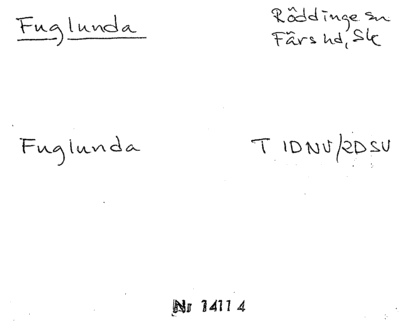 Fuglunda
Röddinge sn
Färs hd, Sk
Fuglunda
T 1DNV/2DSV
Nr 14114